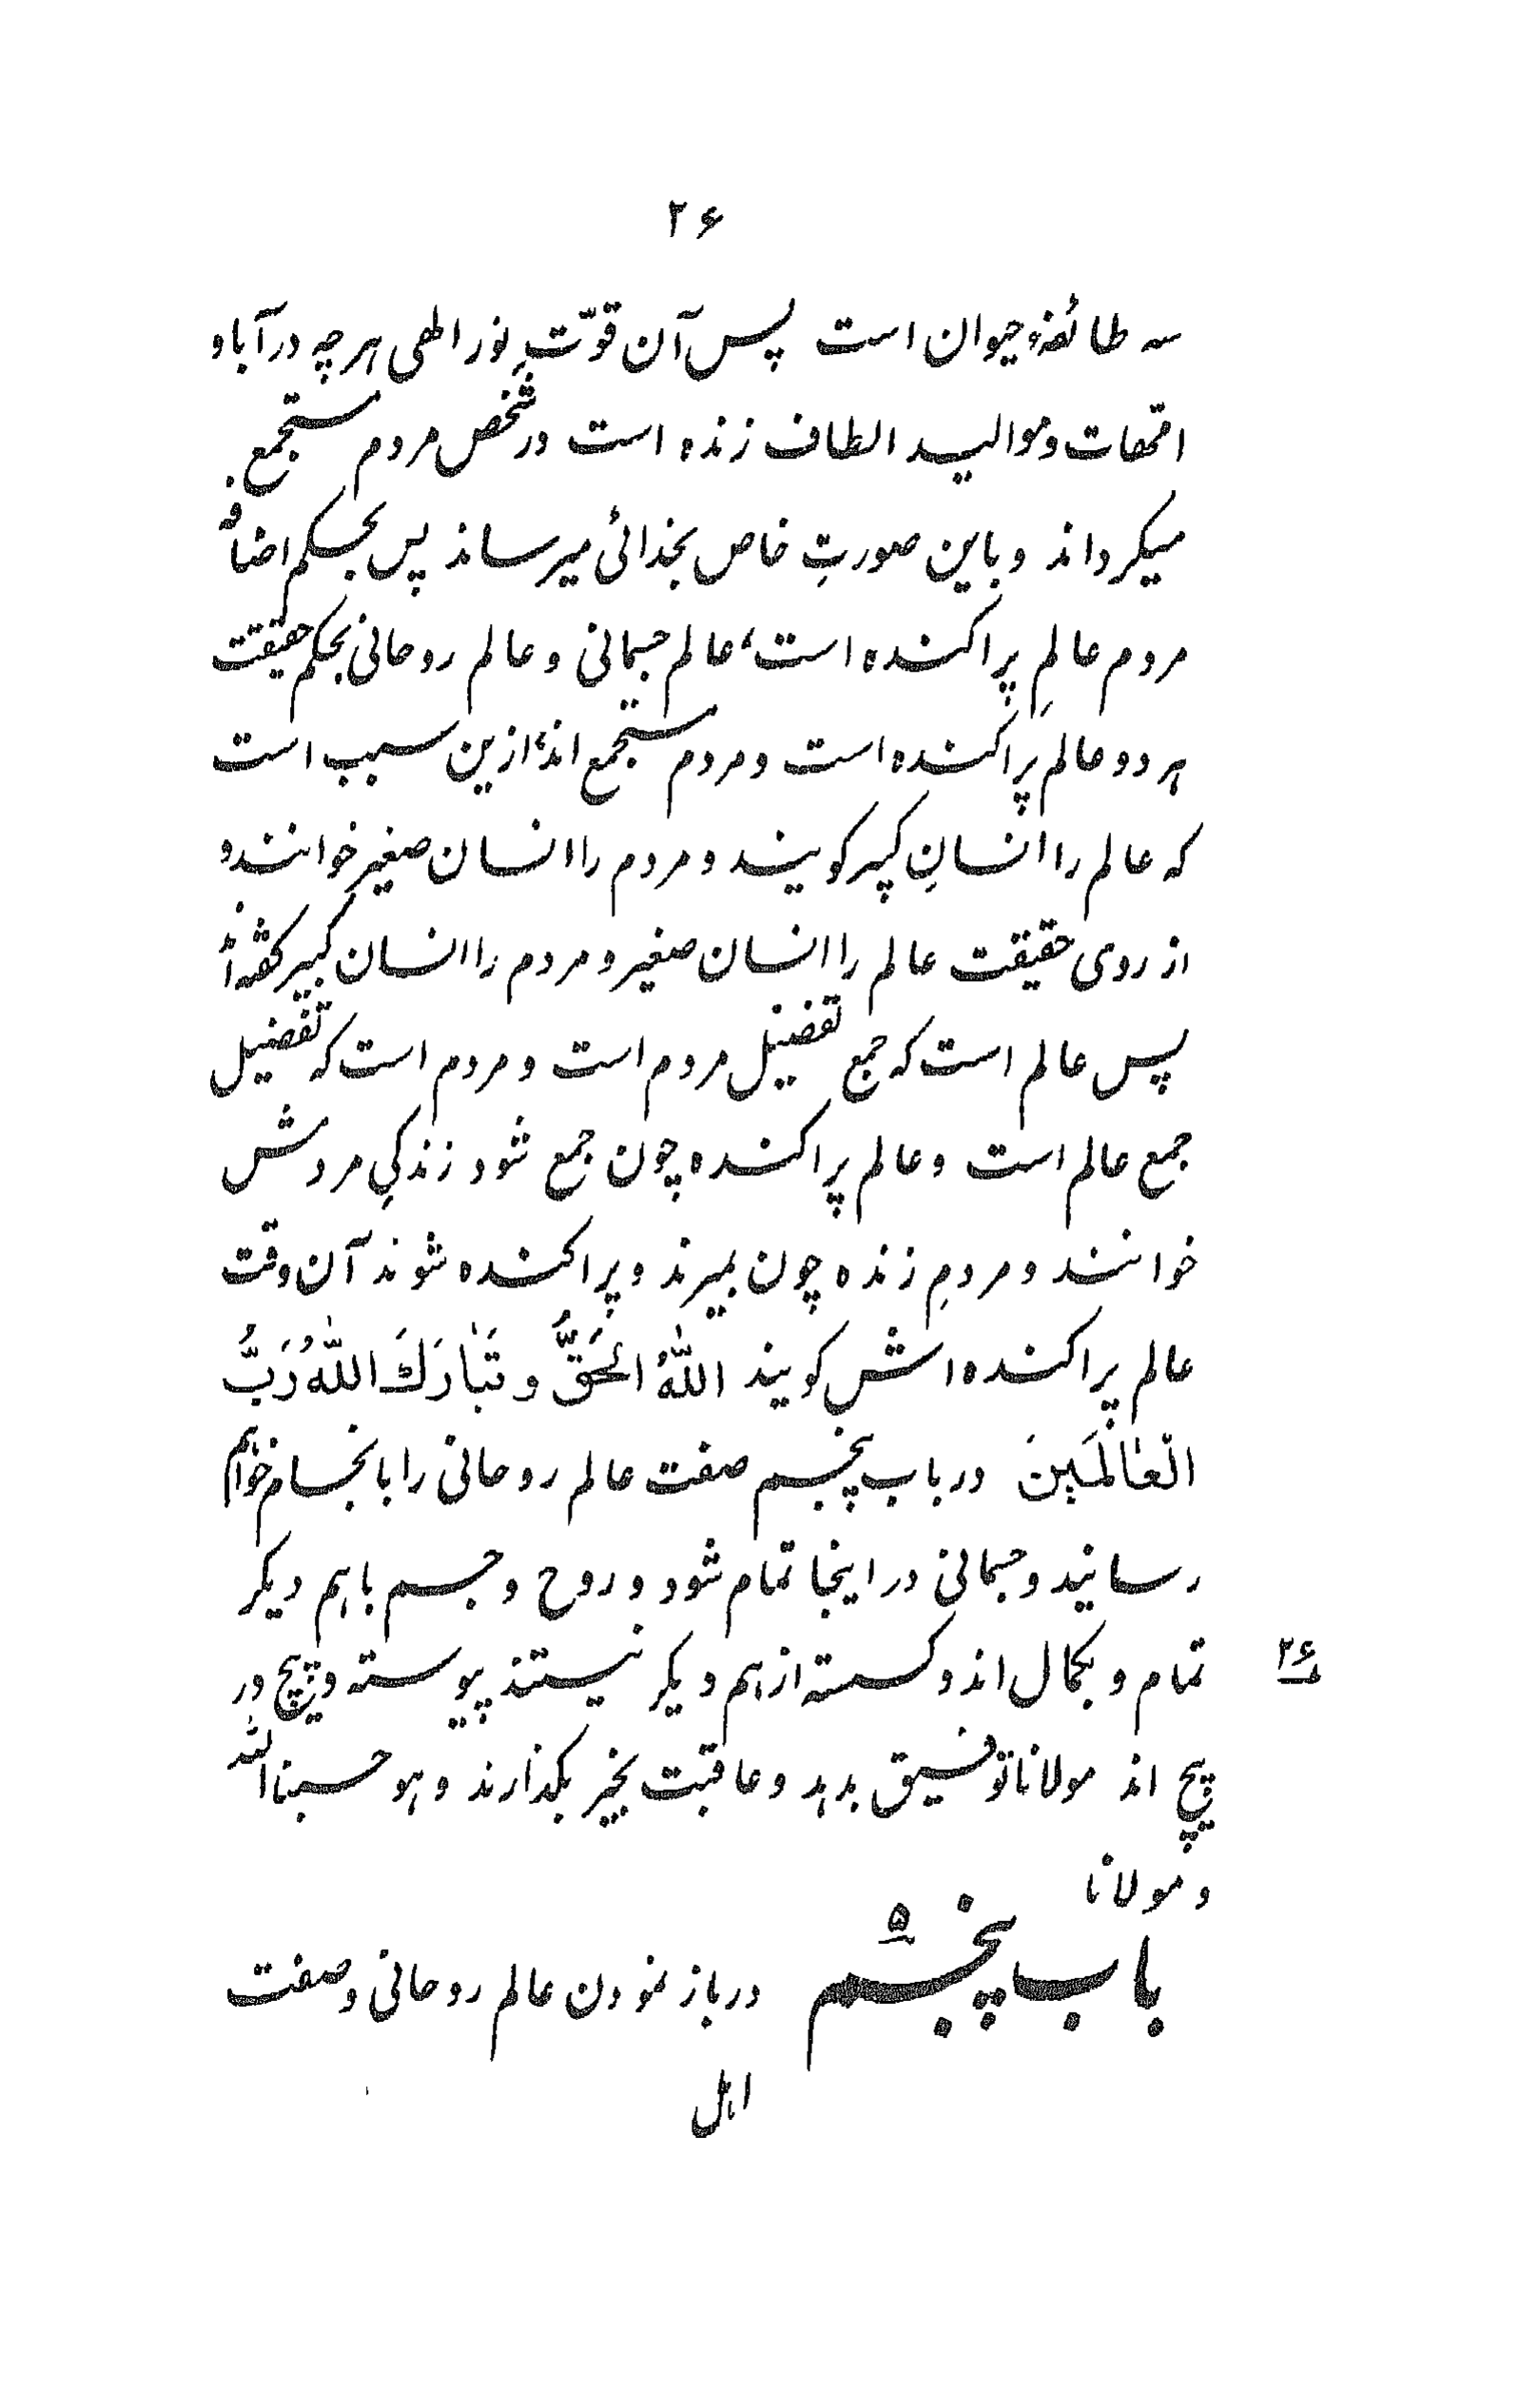 ۲۶
سه طائفهٔ حیوان است پس آن قوّتِ نور الهی هرچه در آبا و
امّهات و موالید الطاف زنده است در شخص مردم مستجمع
میکرداند و باین صورتِ خاص بخدائی میرساند پس بحکم اضافه
مردم عالمِ پراکنده است، عالم جسمانی و عالم روحانی بحکم حقیقت
هر دو عالمِ پراکنده است و مردم مستجمع اند، ازین سبب است
که عالم را انسانِ کبیر کویند و مردم را انسان صغیر خوانند و
از روی حقیقت عالم را انسان صغیر و مردم را انسان کبیر کفته اند
پس عالم است که جمع تفضیل مردم است و مردم است که تفضیل
جمع عالم است و عالم پراکنده چون جمع شود زندکیِ مردمش
خوانند و مردمِ زنده چون بمیرند و پراکنده شوند آن وقت
عالم پراکنده اش کویند اللّٰهُ الحَقُّ و تَبَارَكَ اللّٰهُ رَبُّ
الْعَالَمِينَ در باب پنجم صفت عالم روحانی را بانجام خواهیم
رسانید و جسمانی در اینجا تمام شود و روح و جسم با هم دیکر
تمام و بکمال اند و کسسته از هم دیکر نیستند پیوسته و پیچ در
۲۶
پیچ اند مولانا توفیق بدهد و عاقبت بخیر بکذارند و هو حسبنا الله
و مولانا
باب پنجم ۵ در باز نمودن عالم روحانی و صفت
اهل